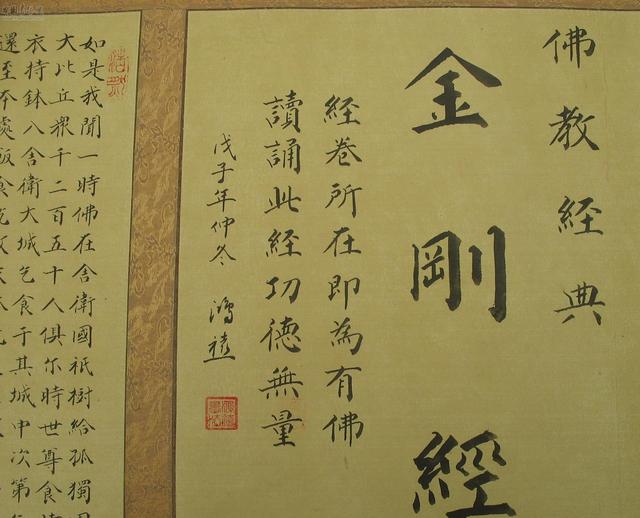 佛教經典
金剛經
經卷所在即為有佛
讀誦此經功德無量
戊子年仲冬
如是我聞一時佛在舍衛國祇樹給孤獨
大比丘眾千二百五十人俱尒時世尊食
衣持鉢入舍衛大城乞食于其城中次第
還至本處飯食訖收衣